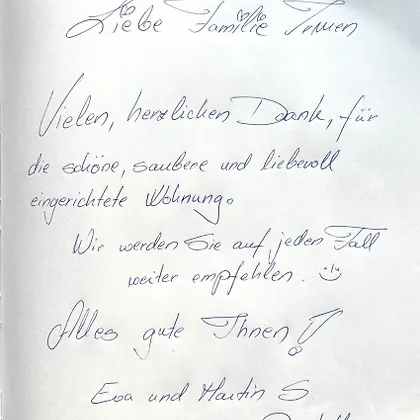 Liebe Familie
Vielen, herzlichen Dank, für
die schöne, saubere und liebevoll
eingerichtete Wohnung.
Wir werden Sie auf jeden Fall
weiter empfehlen.
Alles gute Ihnen!
Eva und Martin S